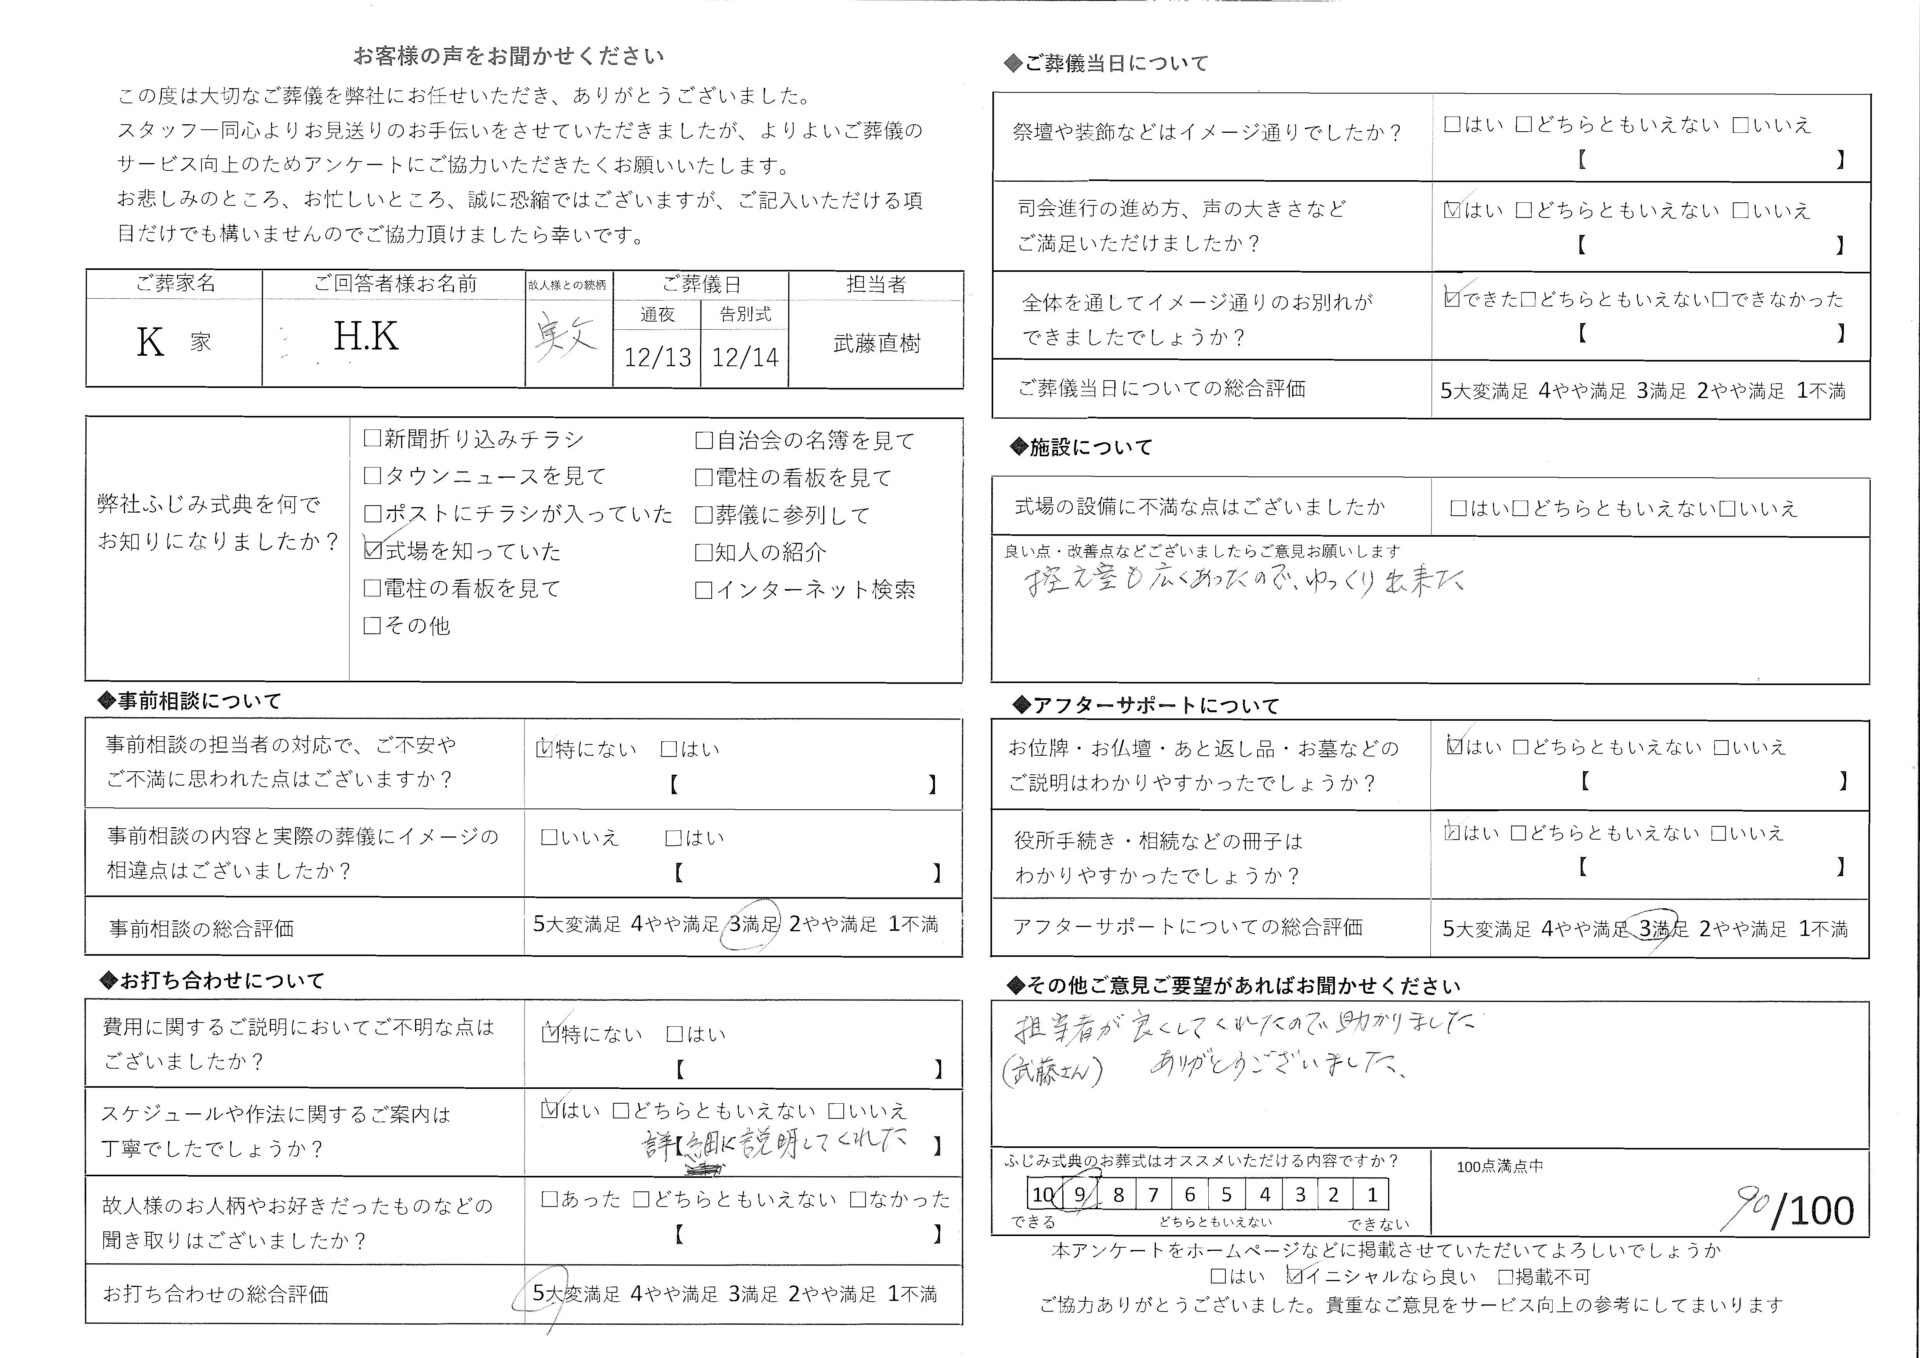 お客様の声をお聞かせください
この度は大切なご葬儀を弊社にお任せいただき、ありがとうございました。
スタッフ一同心よりお見送りのお手伝いをさせていただきましたが、よりよいご葬儀の
サービス向上のためアンケートにご協力いただきたくお願いいたします。
お悲しみのところ、お忙しいところ、誠に恐縮ではございますが、ご記入いただける項
目だけでも構いませんのでご協力頂けましたら幸いです。
ご葬家名 ご回答者様お名前 故人様との続柄 ご葬儀日 担当者
通夜 告別式
K 家 H.K 実父 12/13 12/14 武藤直樹
弊社ふじみ式典を何で
お知りになりましたか？
□新聞折り込みチラシ □自治会の名簿を見て
□タウンニュースを見て □電柱の看板を見て
□ポストにチラシが入っていた □葬儀に参列して
☑式場を知っていた □知人の紹介
□電柱の看板を見て □インターネット検索
□その他
◆事前相談について
事前相談の担当者の対応で、ご不安や
ご不満に思われた点はございますか？
☑特にない □はい
【 】
事前相談の内容と実際の葬儀にイメージの
相違点はございましたか？
□いいえ □はい
【 】
事前相談の総合評価 5大変満足 4やや満足 3満足 2やや満足 1不満
◆お打ち合わせについて
費用に関するご説明においてご不明な点は
ございましたか？
☑特にない □はい
【 】
スケジュールや作法に関するご案内は
丁寧でしたでしょうか？
☑はい □どちらともいえない □いいえ
詳【細に説明してくれた 】
故人様のお人柄やお好きだったものなどの
聞き取りはございましたか？
□あった □どちらともいえない □なかった
【 】
お打ち合わせの総合評価 5大変満足 4やや満足 3満足 2やや満足 1不満
◆ご葬儀当日について
祭壇や装飾などはイメージ通りでしたか？ □はい □どちらともいえない □いいえ
【 】
司会進行の進め方、声の大きさなど
ご満足いただけましたか？
☑はい □どちらともいえない □いいえ
【 】
全体を通してイメージ通りのお別れが
できましたでしょうか？
☑できた□どちらともいえない□できなかった
【 】
ご葬儀当日についての総合評価 5大変満足 4やや満足 3満足 2やや満足 1不満
◆施設について
式場の設備に不満な点はございましたか □はい□どちらともいえない□いいえ
良い点・改善点などございましたらご意見お願いします
控え室も広くあったので、ゆっくり出来た
◆アフターサポートについて
お位牌・お仏壇・あと返し品・お墓などの
ご説明はわかりやすかったでしょうか？
☑はい □どちらともいえない □いいえ
【 】
役所手続き・相続などの冊子は
わかりやすかったでしょうか？
☑はい □どちらともいえない □いいえ
【 】
アフターサポートについての総合評価 5大変満足 4やや満足 3満足 2やや満足 1不満
◆その他ご意見ご要望があればお聞かせください
担当者が良くしてくれたので助かりました
(武藤さん) ありがとうございました、
ふじみ式典のお葬式はオススメいただける内容ですか？
10 9 8 7 6 5 4 3 2 1
できる どちらともいえない できない
100点満点中
90/100
本アンケートをホームページなどに掲載させていただいてよろしいでしょうか
□はい ☑イニシャルなら良い □掲載不可
ご協力ありがとうございました。貴重なご意見をサービス向上の参考にしてまいります